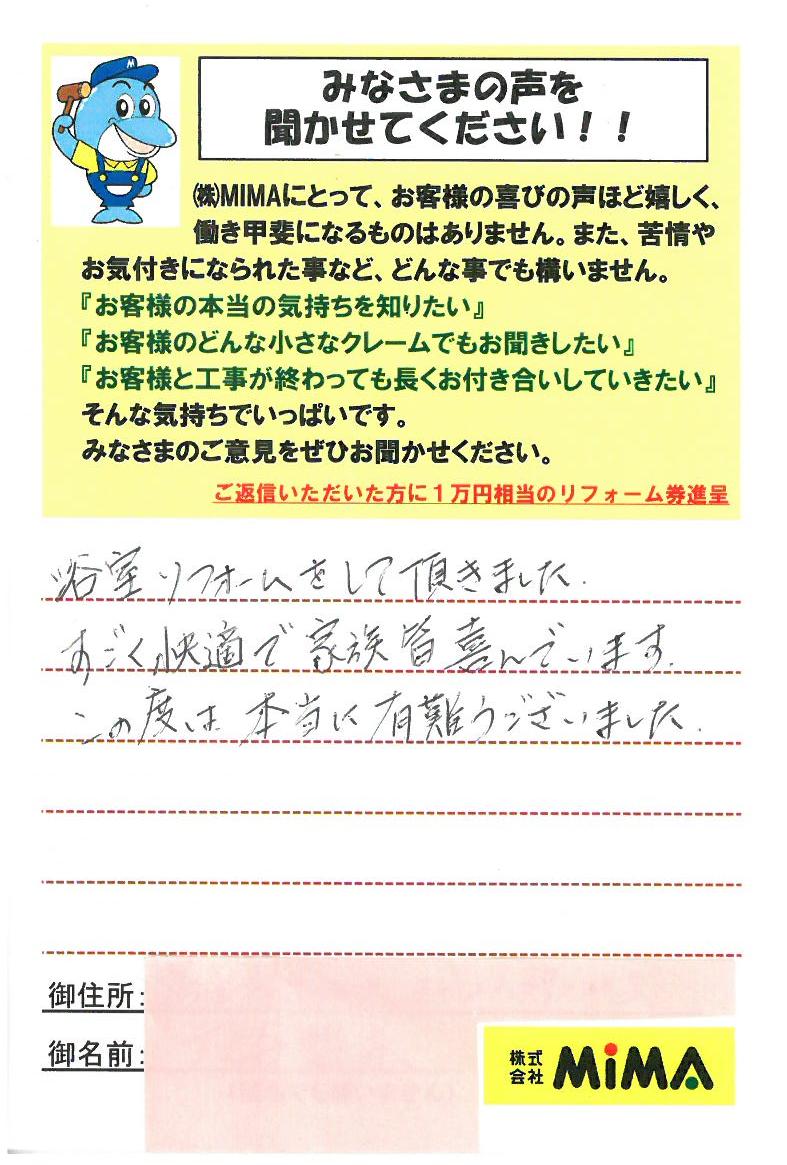 みなさまの声を
聞かせてください！！
㈱MIMAにとって、お客様の喜びの声ほど嬉しく、
働き甲斐になるものはありません。また、苦情や
お気付きになられた事など、どんな事でも構いません。
『お客様の本当の気持ちを知りたい』
『お客様のどんな小さなクレームでもお聞きしたい』
『お客様と工事が終わっても長くお付き合いしていきたい』
そんな気持ちでいっぱいです。
みなさまのご意見をぜひお聞かせください。
ご返信いただいた方に１万円相当のリフォーム券進呈
浴室リフォームをして頂きました.
すごく快適で家族皆喜んでいます.
この度は本当に有難うございました.
御住所:
御名前:
株式
会社 MiMA